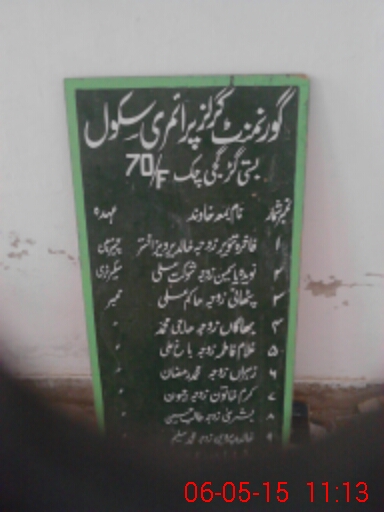 گورنمنٹ گرلز پرائمری سکول
بستی گڑنجی چک 70/F
نمبر شمار نام بمعہ خاوند عہدہ
۱ فاخرہ تنویر زوجہ خالد پرویز اختر چیئرمین
۲ نویدہ یاسمین زوجہ شوکت علی سیکرٹری
۳ پٹھانی زوجہ حاکم علی ممبر
۴ بھاگاں زوجہ حاجی محمد "
۵ غلام فاطمہ زوجہ باغ علی "
۶ زہراں زوجہ محمد رمضان "
۷ کرم خاتون زوجہ "
۸ بشریٰ زوجہ طالب حسین "
۹ خالدہ پروین زوجہ محمد سلیم "
06-05-15 11:13